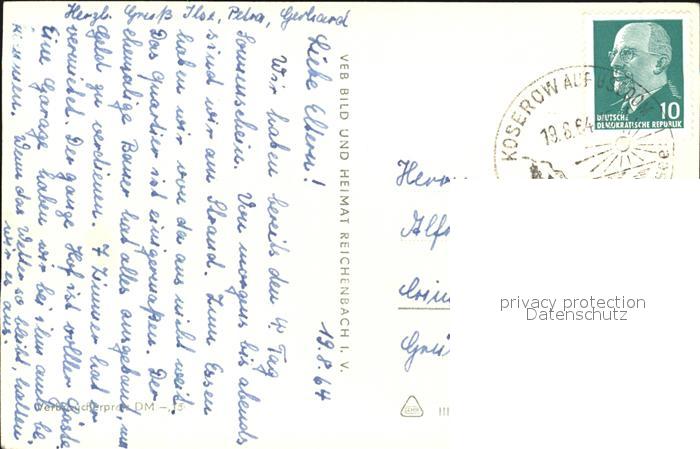 Herzl. Gruß Ilse, Petra, Gerhard
19.8.64
Liebe Eltern!
Wir haben bereits den 4. Tag
Sonnenschein. Von morgens bis abends
sind wir am Strand. Zum Essen
haben wir von da aus nicht weit.
Das Quartier ist einigermaßen. Der
ehmalige Bauer hat alles ausgebaut, um
Geld zu verdienen. 7 Zimmer hat er
vermietet. Der ganze Hof ist voller Gäste.
Eine Garage haben wir bei ihm auch be-
kommen. Wenn das Wetter so bleibt, halten
wir es aus.
VEB BILD UND HEIMAT REICHENBACH I. V.
Verbraucherpreis DM
KOSEROW AUF USEDOM
19.8.64
10
DEUTSCHE
DEMOKRATISCHE REPUBLIK
Herrn
Alfr
privacy protection
Datenschutz
III